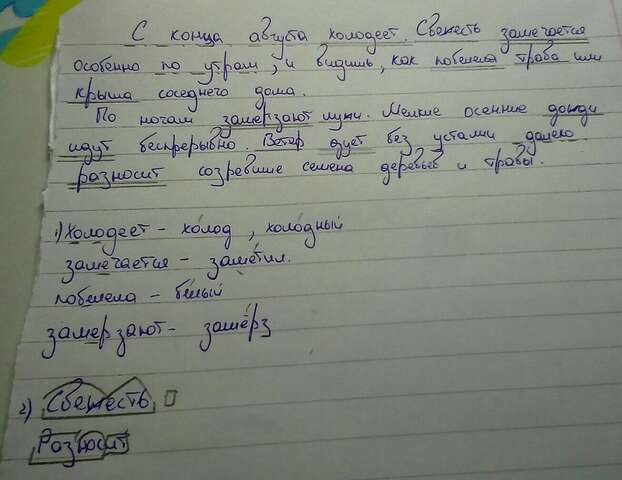 С конца августа холодеет. Свежесть замечается
особенно по утрам, и видишь, как побелела трава или
крыша соседнего дома.
По ночам замерзают лужи. Мелкие осенние дожди
идут беспрерывно. Ветер дует без устали далеко
разносит созревшие семена деревьев и травы.
1) Холодеет – хо́лод, холо́дный
замечается – заме́тил.
побелела – бе́лый
замерзают – замёрз
2) Свежесть
Разносит